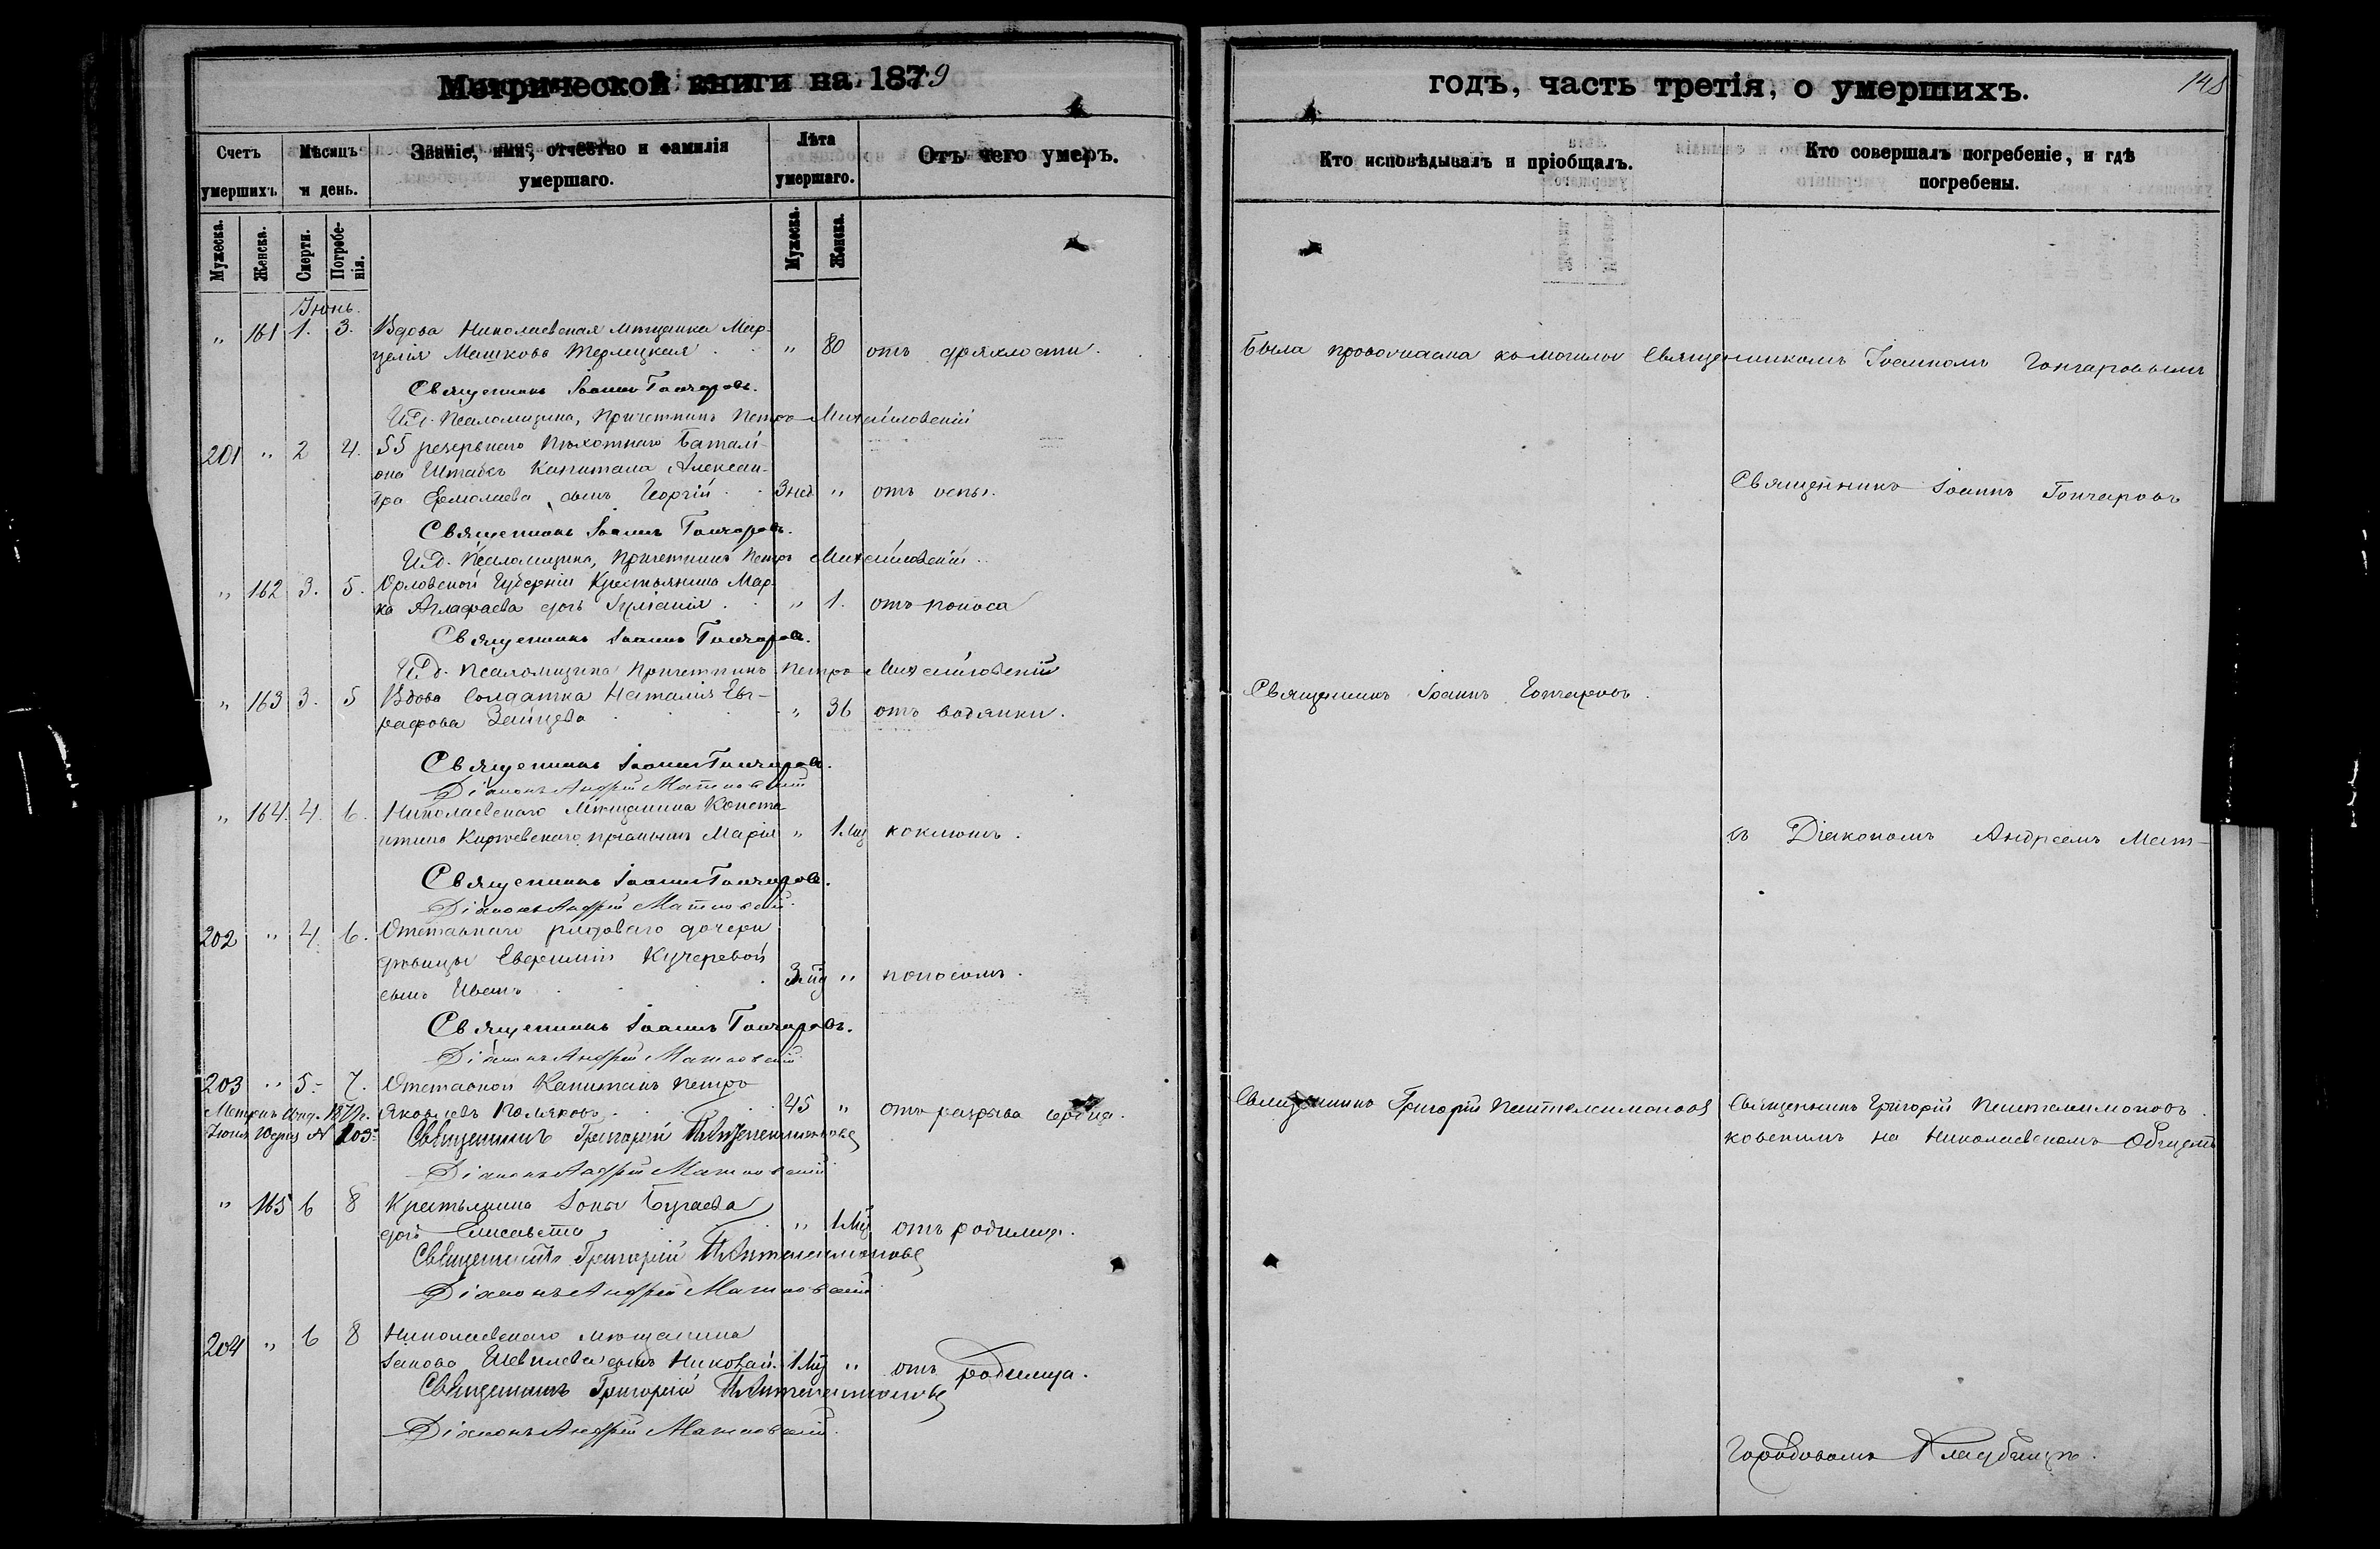 Метрической книги на 1879
годъ, часть третія, о умершихъ.
148
Счетъ умершихъ.
Мѣсяцъ и день.
Званіе, имя, отчество и фамилія умершаго.
Лѣта умершаго.
Отъ чего умеръ.
Кто исповѣдывалъ и пріобщалъ.
Кто совершалъ погребеніе, и гдѣ погребены.
Мужеска.
Женска.
Смерти.
Погребенія.
Мужеска.
Женска.
Іюнь.
" 161 1. 3. Вдова Николаевская мѣщанка Мар-
целія Машкова Терлецкая " 80 отъ дряхлости. Была провожаема къ могилѣ Священникомъ Іоанномъ Гончаровымъ
Священникъ Іоаннъ Гончаровъ.
И.д. Псаломщика, Причетникъ Петръ
201 " 2 4. 55 резервнаго пѣхотнаго баталі-
она Штабсъ Капитана Алексан-
дра Ермолаева сынъ Георгій 3 нед " отъ оспы. Священникъ Іоаннъ Гончаровъ
Священникъ Іоаннъ Гончаровъ.
И.д. Псаломщика, Причетникъ Петръ
" 162 3. 5. Орловской Губерніи Крестьянина Мар-
ка дочь Іуліанія " 1. отъ поноса
Священникъ Іоаннъ Гончаровъ.
И.д. Псаломщика Причетникъ Петръ
" 163 3. 5 Вдова Солдатка Наталія Ев-
графова Зайцева " 36 отъ водянки. Священникъ Іоаннъ Гончаровъ.
Священникъ Іоаннъ Гончаровъ.
Діаконъ Андрей
" 164. 4. 6. Николаевскаго Мѣщанина Конста-
нтина Марія " 1 Мц коклюшъ. съ Діакономъ Андреемъ Мат-
Священникъ Іоаннъ Гончаровъ.
Діаконъ Андрей
202 " 4. 6. Отставнаго рядоваго дочери
дѣвицы Евфиміи Кучеревой
сынъ Иванъ 3 " поносомъ.
Священникъ Іоаннъ Гончаровъ.
Діаконъ Андрей
203 " 5. 7. Отставной Капитанъ Петръ
Яковлевъ Поляковъ 45 " отъ разрыва сердца. Священникъ Григорій Пантелеимоновъ Священникъ Григорій Пантелеимоновъ
1879 г.
Іюня № 103
Священникъ Григорій Пантелеимоновъ
ковскимъ на Николаевскомъ Общемъ
Діаконъ Андрей
" 165 6 8 Крестьянина Іоны Бугаева
дочь Елисавета " 1 Мц отъ родимца.
Священникъ Григорій Пантелеимоновъ
Діаконъ Андрей
204 " 6 8 Николаевскаго мѣщанина
Іакова сынъ Николай. 1 Мц " отъ родимца.
Священникъ Григорій Пантелеимоновъ
Діаконъ Андрей
Городовомъ Кладбищѣ.